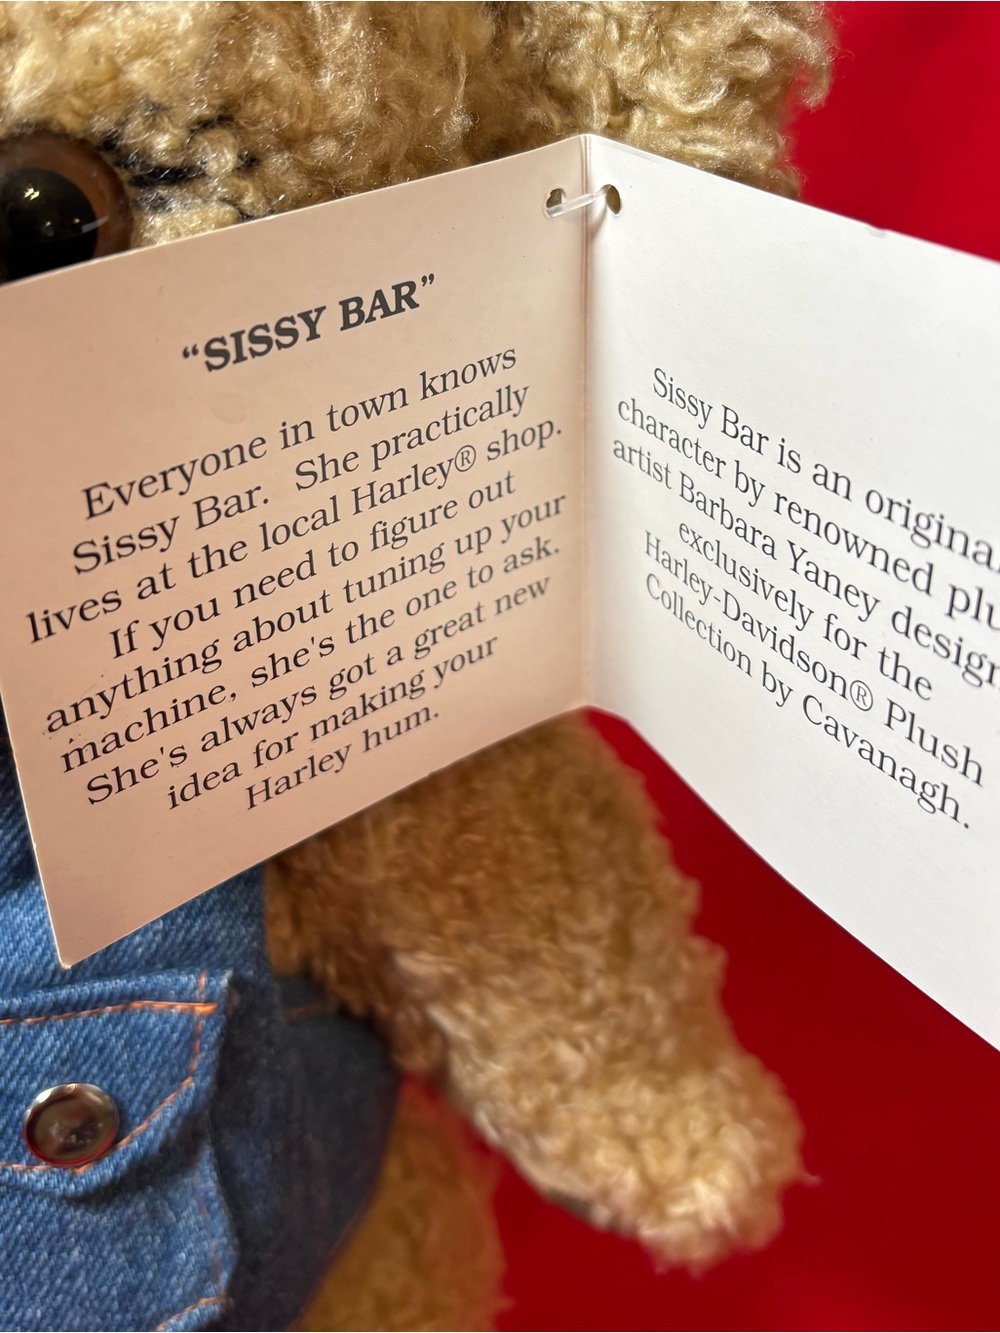 “SISSY BAR”
Everyone in town knows
Sissy Bar. She practically
lives at the local Harley® shop.
If you need to figure out
anything about tuning up your
machine, she's the one to ask.
She's always got a great new
idea for making your
Harley hum.
Sissy Bar is an original
character by renowned
artist Barbara Yaney
exclusively for the
Harley-Davidson® Plush
Collection by Cavanagh.